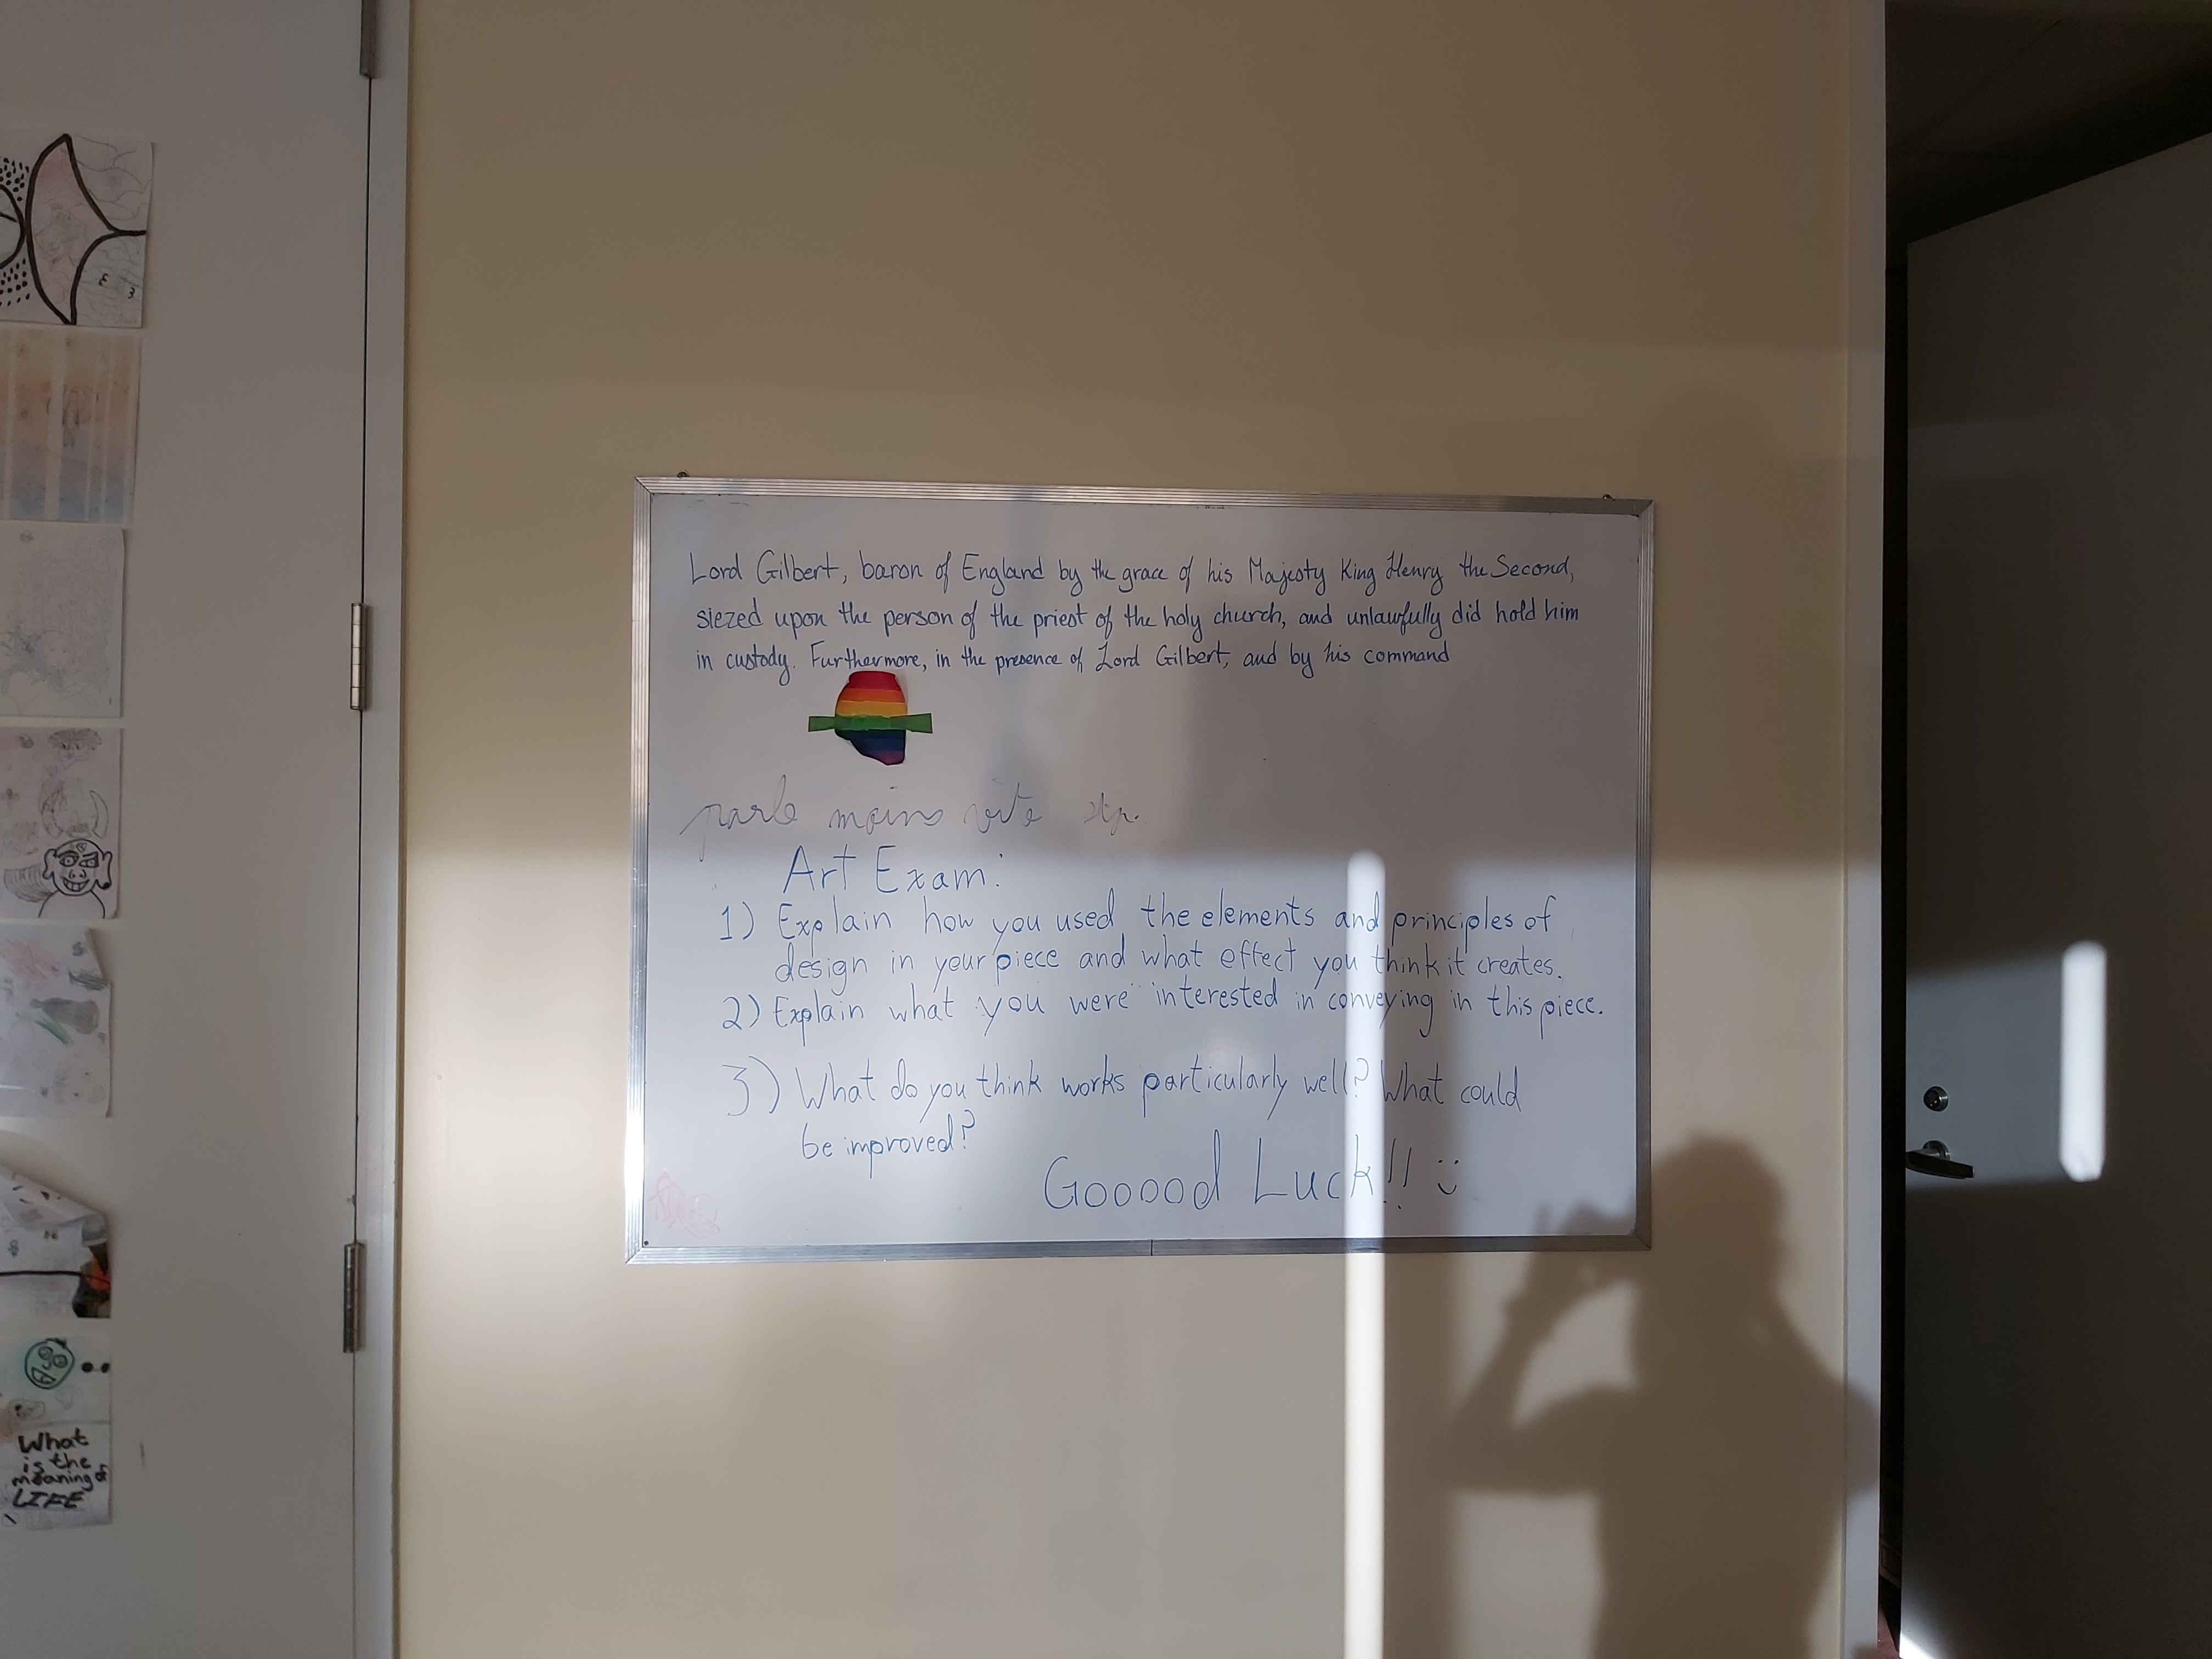 Lord Gilbert, baron of England by the grace of his Majesty King Henry the Second,
siezed upon the person of the priest of the holy church, and unlawfully did hold him
in custody. Furthermore, in the presence of Lord Gilbert, and by his command
parle moins vite stp.
Art Exam:
1) Explain how you used the elements and principles of
design in your piece and what effect you think it creates.
2) Explain what you were interested in conveying in this piece.
3) What do you think works particularly well? What could
be improved?
Gooood Luck!! :)
What
is the
meaning of
LIFE